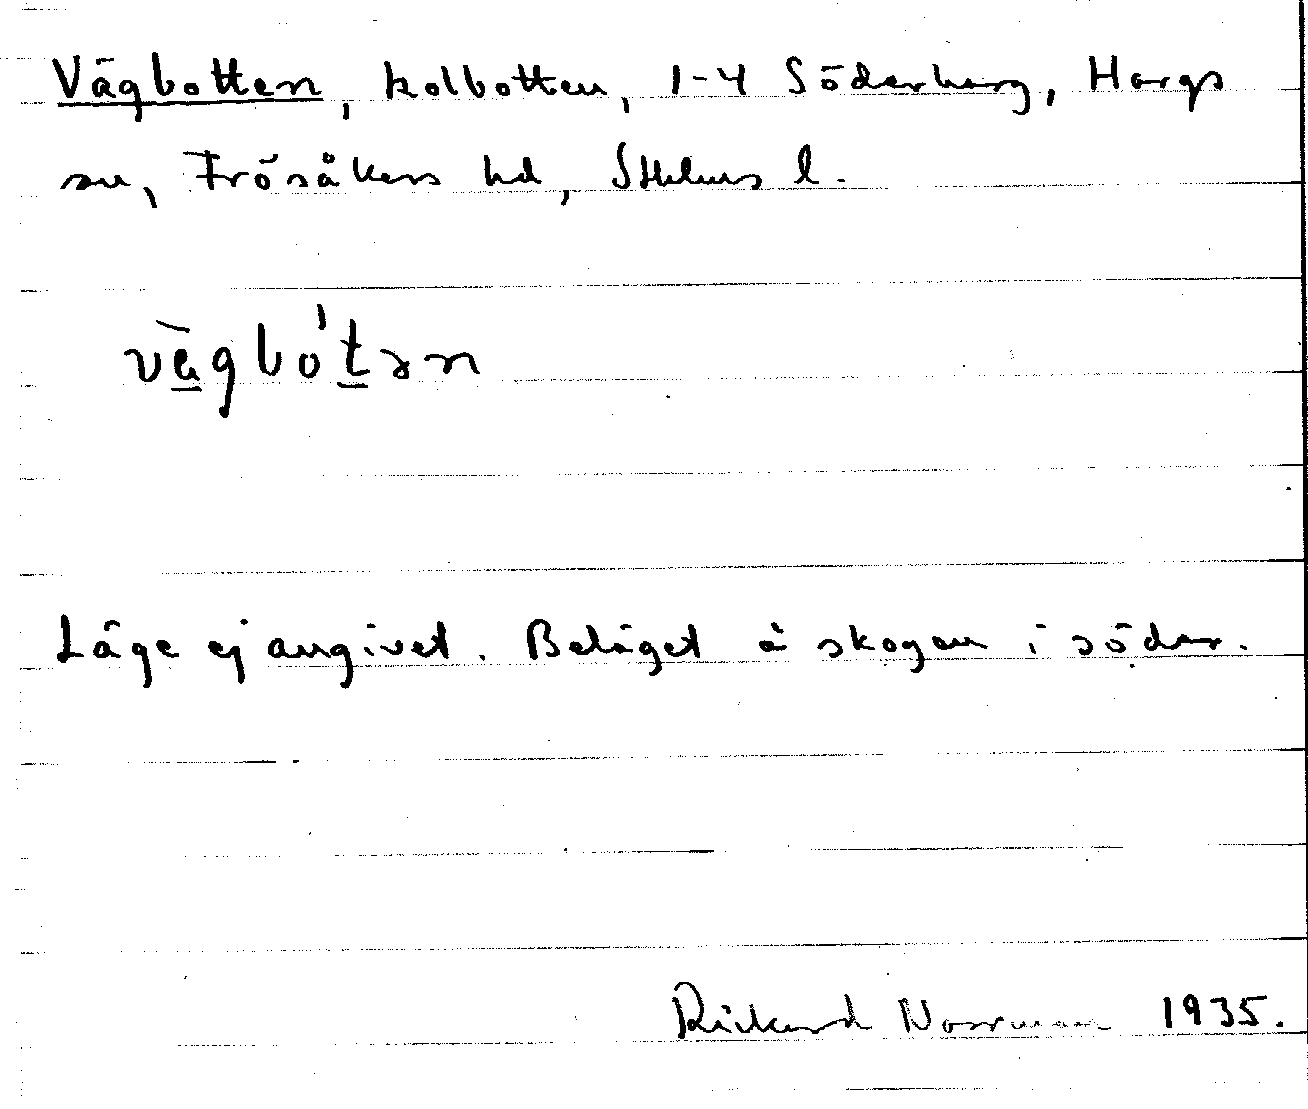 Vägbotten, kolbotten, 1-4 Söderberg, Hargs
sn, Frösåkers hd, Sthlms l.
vägbo'tən
Läge ej angivet. Beläget å skogen i söder.
Rickard Norrman 1935.